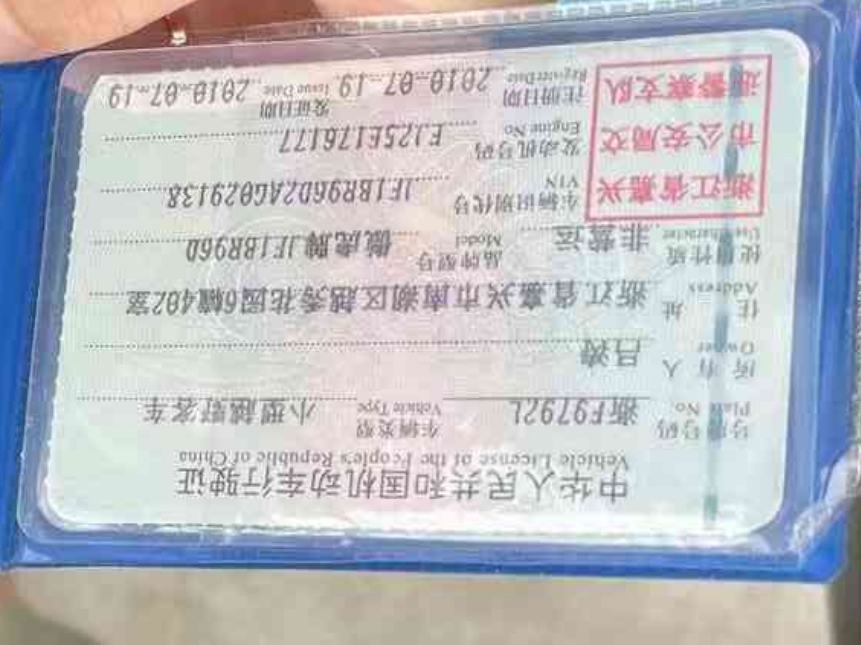 中华人民共和国机动车行驶证
Vehicle License of the People's Republic of China
号牌号码 浙F9792L 车辆类型 小型越野客车
Plate No. Vehicle Type
所有人 吕涛
Owner
住址 浙江省嘉兴市南湖区越秀花园6幢402室
Address
使用性质 非营运 品牌型号 傲虎牌JF1BR96D
Use Character Model
浙江省嘉兴市公安局交通警察支队
车辆识别代号 JF1BR96D2AG029138
VIN
发动机号码 EJ25E176177
Engine No.
注册日期 2010-07-19 发证日期 2010-07-19
Register Date Issue Date